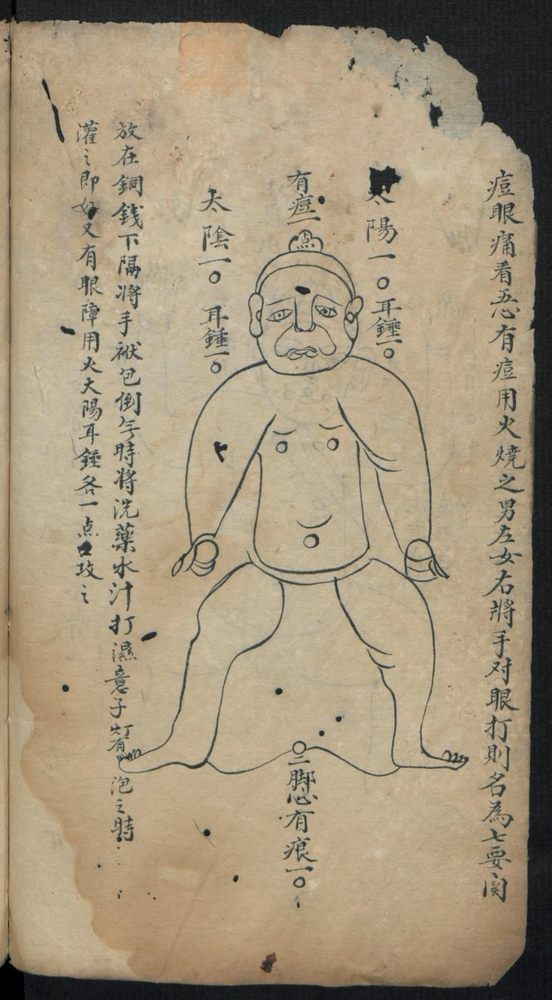 痘眼痛看五心有痘用火燒之男左女右將手对眼打則名為七要関
太陽一〇耳錘一〇
有痘一点
太陰一〇耳錘一〇
〇二脚心有痕一〇
放在銅錢下隔將手袱包倒午時將洗藥水汁打濕意子 泡之時
灌之即好又有眼障用火太陽耳錘各一点 攻之